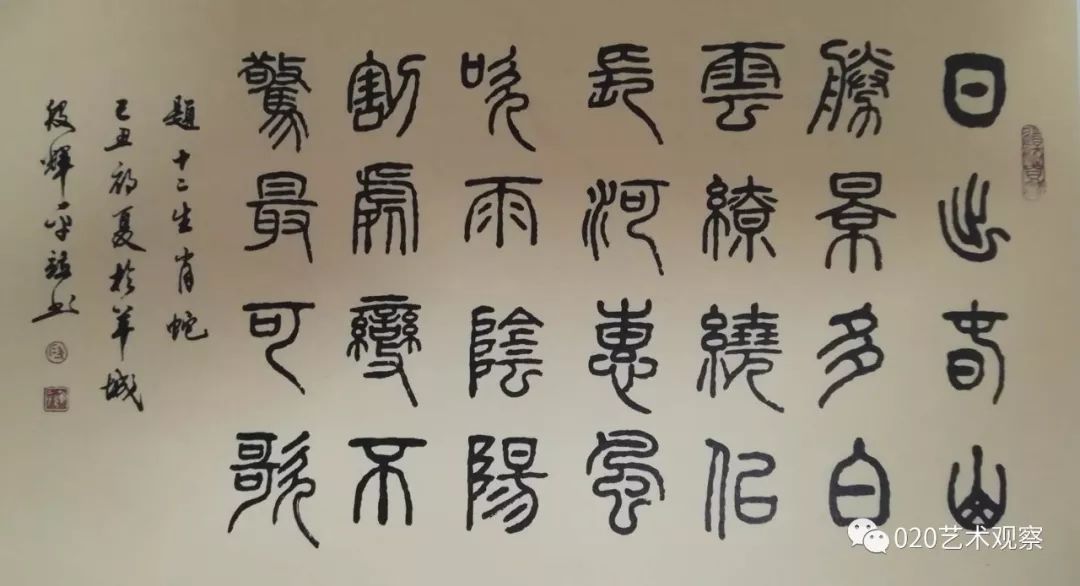 日出春山
勝景多白
雲繚繞似
長河惠風
吹雨陰陽
割處變不
驚最可歌
題十二生肖蛇
己丑初夏於羊城
段輝平
020艺术观察